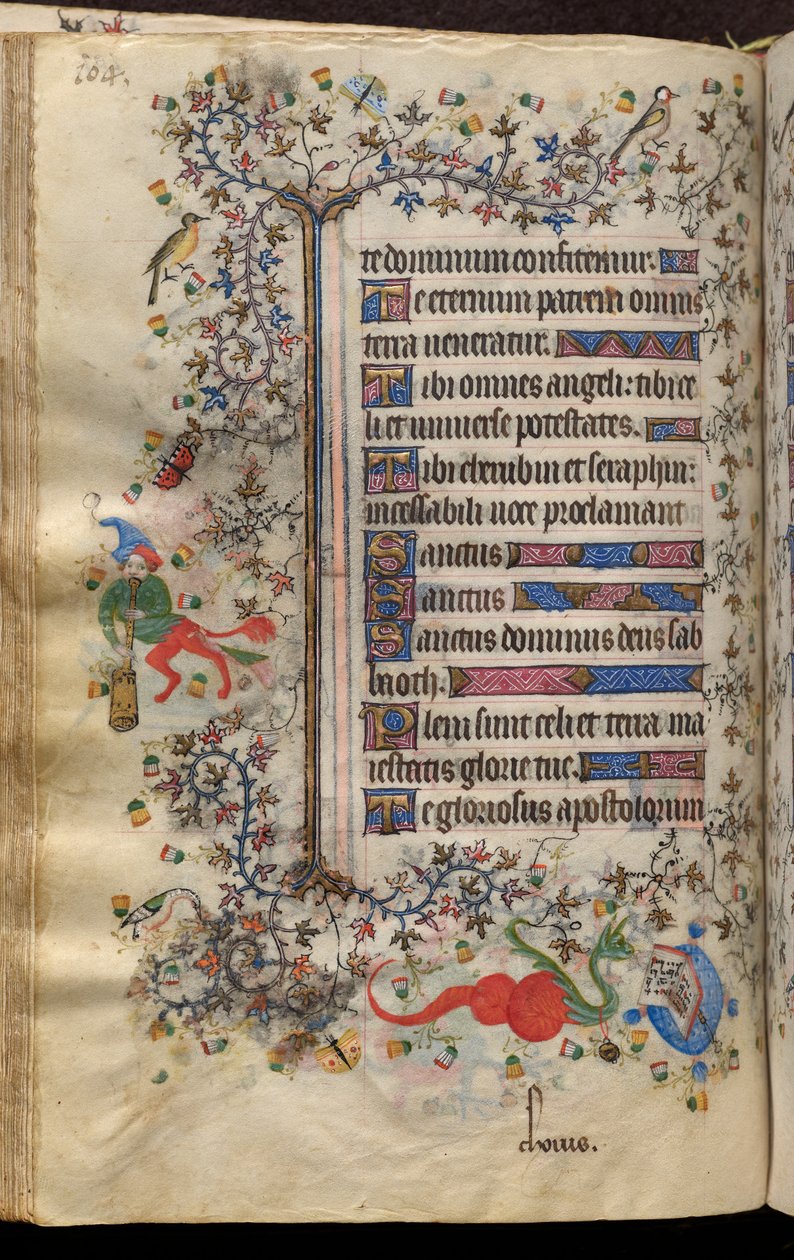 104.
te dominum confitemur.
Te eternum patrem omnis
terra ueneratur.
Tibi omnes angeli: tibi ce
li et uniuerse potestates.
Tibi cherubin et seraphin:
incessabili uoce proclamant
Sanctus
Sanctus
Sanctus dominus deus sab
baoth.
Pleni sunt celi et terra ma
iestatis glorie tue.
Te gloriosus apostolorum
chorus.